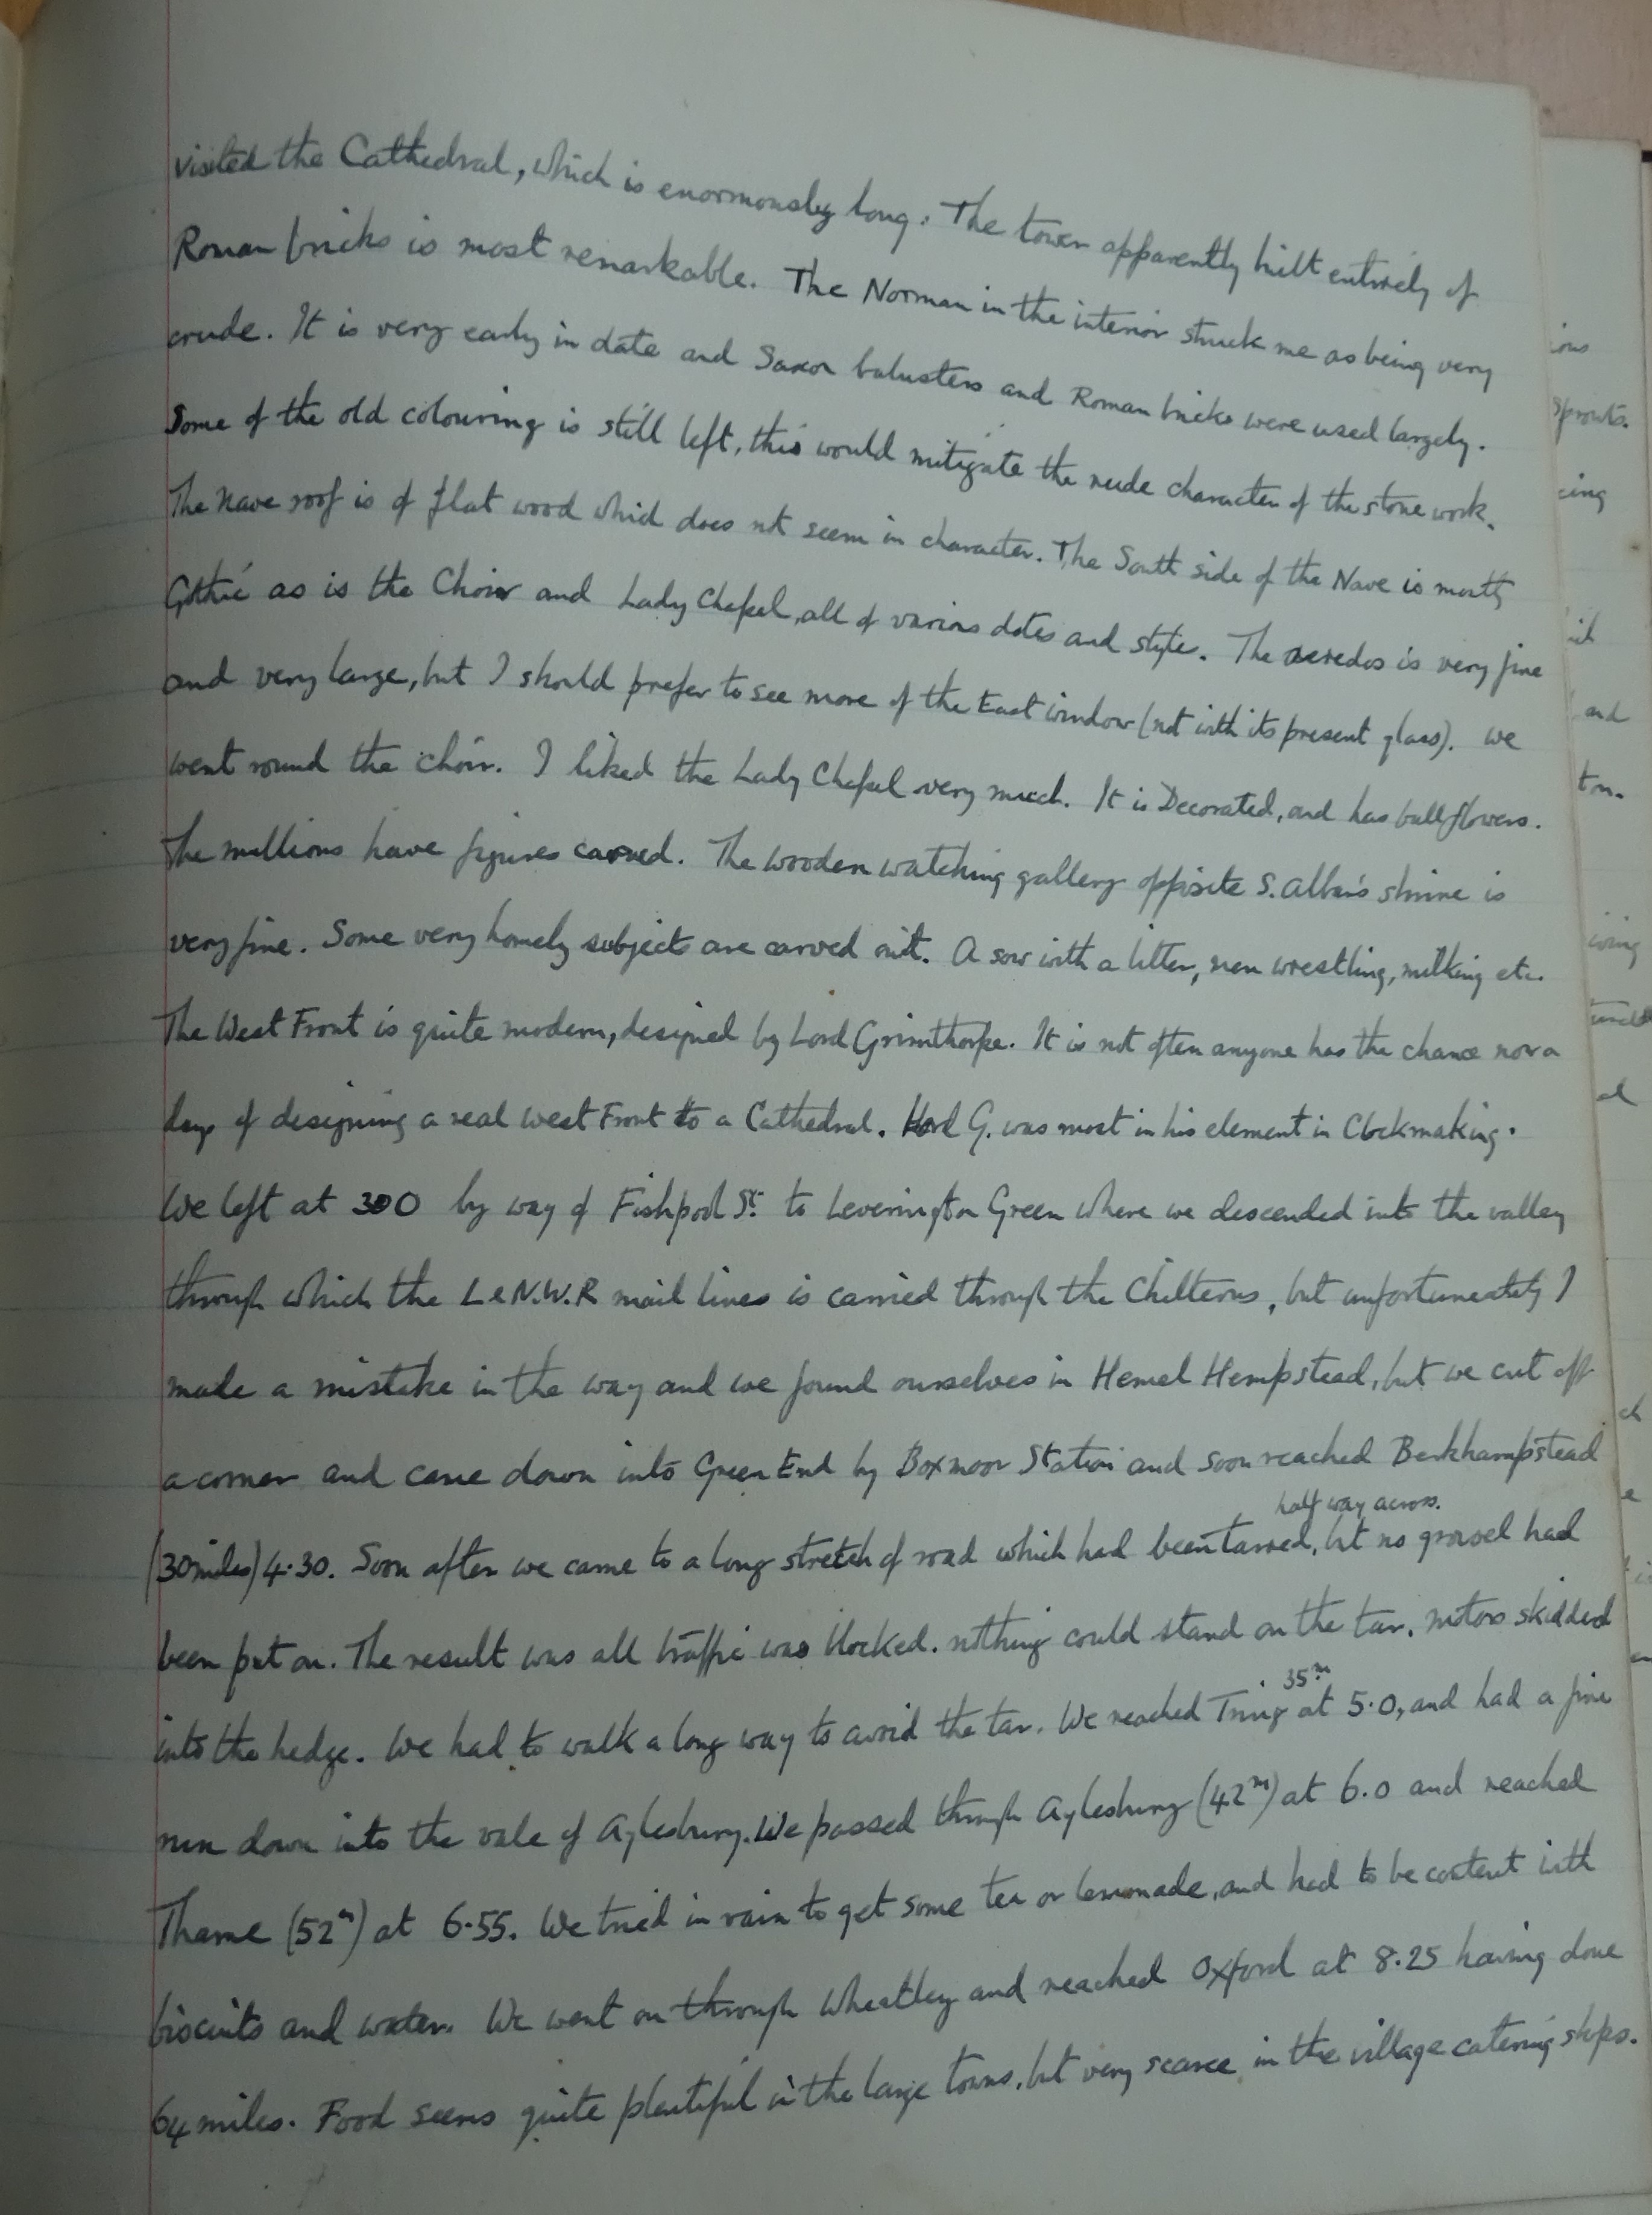 visited the Cathedral, which is enormously long. The tower apparently built entirely of
Roman bricks is most remarkable. The Norman in the interior struck me as being very
crude. It is very early in date and Saxon balusters and Roman bricks were used largely.
Some of the old colouring is still left, this would mitigate the rude character of the stone work.
The Nave roof is of flat wood which does not seem in character. The South side of the Nave is mostly
Gothic as is the Choir and Lady Chapel, all of various dates and style. The reredos is very fine
and very large, but I should prefer to see more of the East window (not with its present glass). We
went round the choir. I liked the Lady Chapel very much. It is Decorated, and has ballflowers.
The mullions have figures carved. The wooden watching gallery opposite S. Alban's shrine is
very fine. Some very homely subjects are carved on it. A sow with a litter, men wrestling, milking etc.
The West Front is quite modern, designed by Lord Grimthorpe. It is not often anyone has the chance now a
days of designing a real West Front to a Cathedral. Lord G. was most in his element in Clockmaking.
We left at 3 0 by way of Fishpool St. to Leverington Green where we descended into the valley
through which the L & N.W.R main lines is carried through the Chilterns, but unfortunately I
made a mistake in the way and we found ourselves in Hemel Hempstead, but we cut off
a corner and came down into Green End by Boxmoor Station and soon reached Berkhampstead
half way across.
(30 miles) 4.30. Soon after we came to a long stretch of road which had been tarred, but no gravel had
been put on. The result was all traffic was blocked. nothing could stand on the tar, motors skidded
35m
into the hedge. We had to walk a long way to avoid the tar. We reached Tring at 5.0, and had a fine
run down into the vale of Aylesbury. We passed through Aylesbury (42m) at 6.0 and reached
Thame (52m) at 6.55. We tried in vain to get some tea or lemonade, and had to be content with
biscuits and water. We went on through Wheatley and reached Oxford at 8.25 having done
64 miles. Food seems quite plentiful in the large towns, but very scarce in the village catering shops.
ions
sprouts.
cing
and
ton.